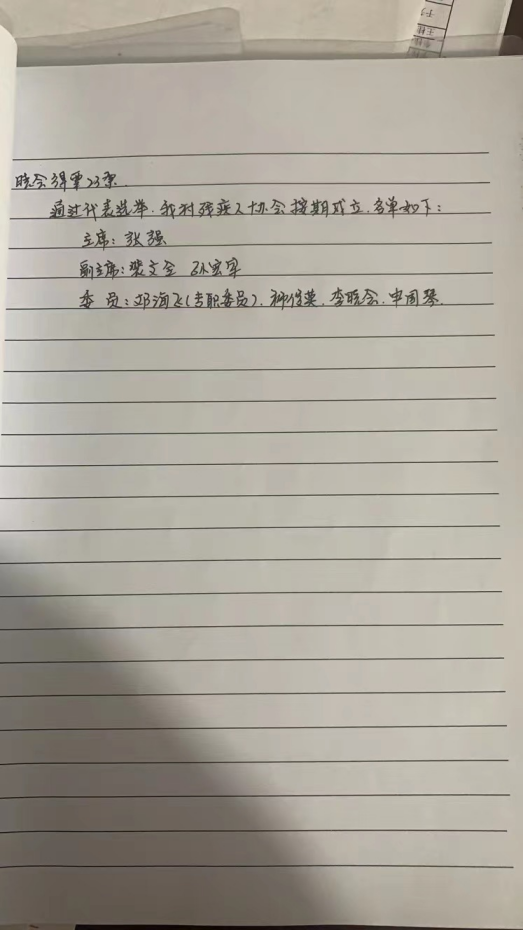 晓会得票23票.
通过代表选举.我村残疾人协会按期成立.名单如下:
主席:张强
副主席:柴文全 孙宏军
委员:邓海飞(专职委员).柳俊英.李晓会.申国琴.